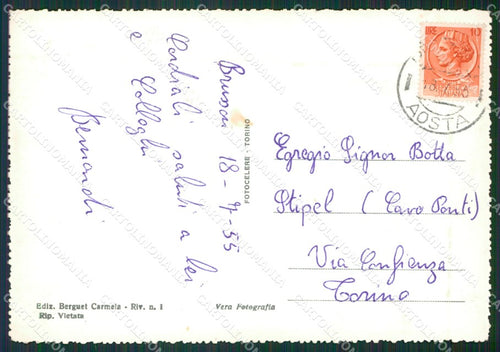 Brusson 18-7-55
Cordiali saluti a lei
e Colleghi
Bernardi
FOTOCELERE - TORINO
Egregio Signor Botta
Stipel (Cavo Ponti)
Via Confienza
Torino
LIRE 10
AOSTA
Ediz. Berguet Carmela - Riv. n. 1
Rip. Vietata
Vera Fotografia
CARTOLINOMANIA